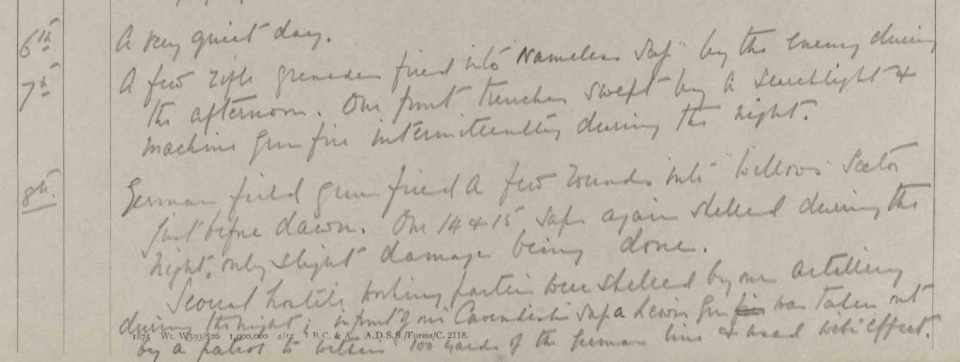 6th A very quiet day.
7th A few rifle grenades fired into Nameless Sap by the enemy during
the afternoon. Our front trenches swept by a searchlight &
machine gun fire intermittently during the night.
8th. German field gun fired a few rounds into Willows Sector
just before dawn. Our 14 & 15 saps again shelled during the
night, only slight damage being done.
Several hostile working parties were shelled by our artillery
during the night; in front of our Cavendish Sap a Lewis Gun was taken out
by a patrol to within 100 yards of the German line & used with effect.
1875 Wt. W593/826 1,000,000 4/15 J.B.C. & A. A.D.S.S./Forms/C. 2118.